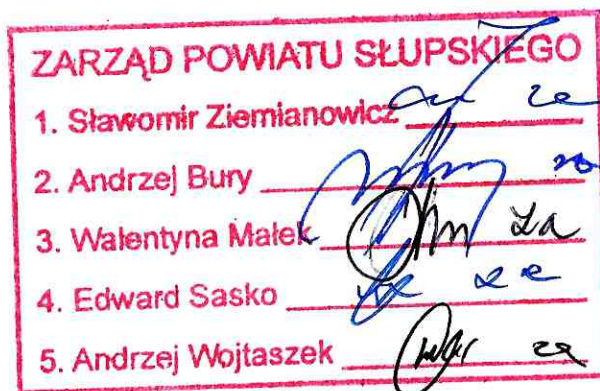 ZARZĄD POWIATU SŁUPSKIEGO
1. Sławomir Ziemianowicz za
2. Andrzej Bury
3. Walentyna Małek za
4. Edward Sasko za
5. Andrzej Wojtaszek za